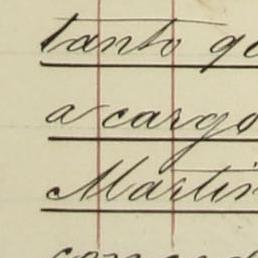 tanto qu
a cargo
Martin